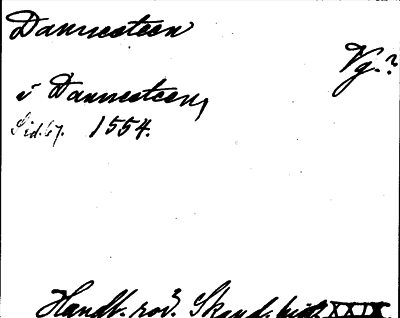 Dannesteen
Vg.?
i Dannesteen,
Sid. 67. 1554.
Handl. rör. Skand. hist. XXIX